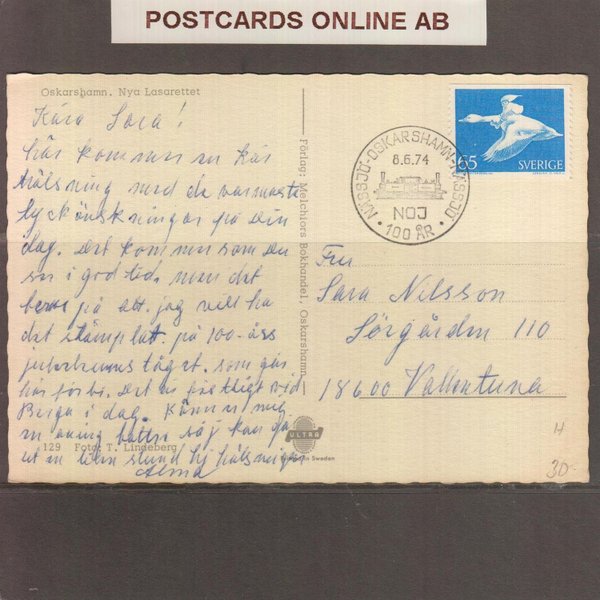 POSTCARDS ONLINE AB
Oskarshamn. Nya Lasarettet
Kära Sara!
här kommer en kär
hälsning med de varmaste
lyckönskningar på Din
dag. Det kommer som Du
ser i god tid. men det
beror på att. jag vill ha
det stämplat. på 100-års
tåget. som går
här förbi. Det är festligt vid
Berga i dag. Känner mej
en aning bättre så j kan gå
ut en liten stund hj hälsningar
Alma
129 Foto: T. Lindeberg
Förlag: Melchiors Bokhandel, Oskarshamn
ULTRA
in Sweden
NÄSSJÖ-OSKARSHAMN-NÄSSJÖ
8.6.74
NOJ
100 ÅR
65 SVERIGE
Fru
Sara Nilsson
Sörgården 110
18600 Vallentuna
H
30-